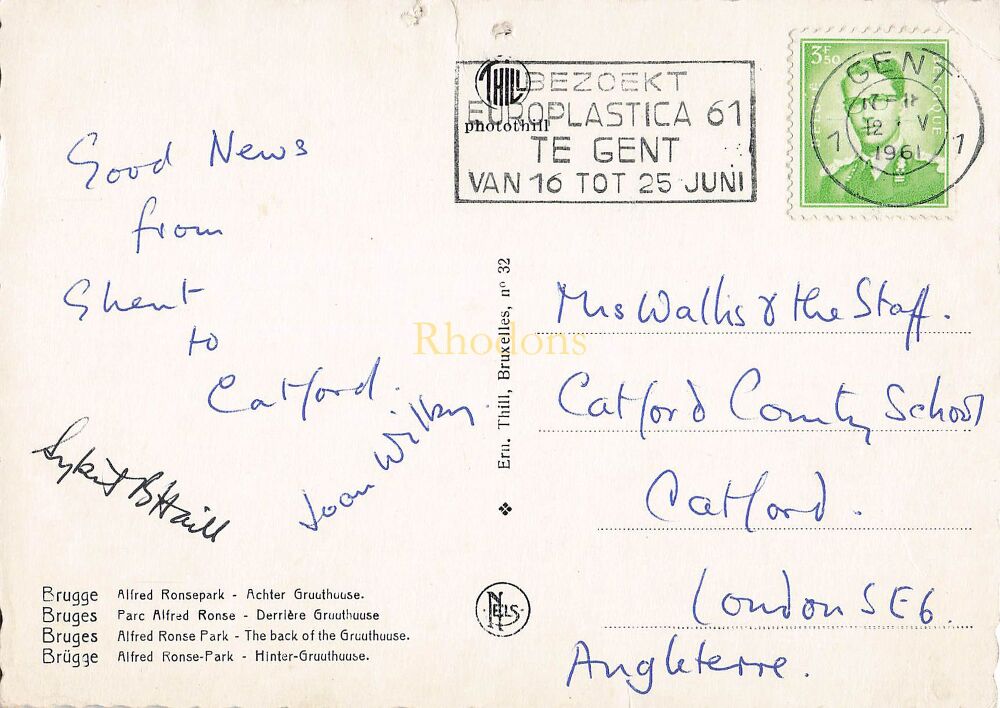 THILL
photothill
BEZOEKT
EUROPLASTICA 61
TE GENT
VAN 16 TOT 25 JUNI
3F50
GENT
12 V
1961
1 1
Good News
from
Ghent
to
Catford.
Joan
Ern. Thill, Bruxelles, nº 32
Rhodons
Mrs Wallis & the Staff.
Catford County School
Catford.
London SE6.
Angleterre.
Brugge Alfred Ronsepark - Achter Gruuthuuse.
Bruges Parc Alfred Ronse - Derrière Gruuthuuse
Bruges Alfred Ronse Park - The back of the Gruuthuuse.
Brügge Alfred Ronse-Park - Hinter-Gruuthuuse.
NELS